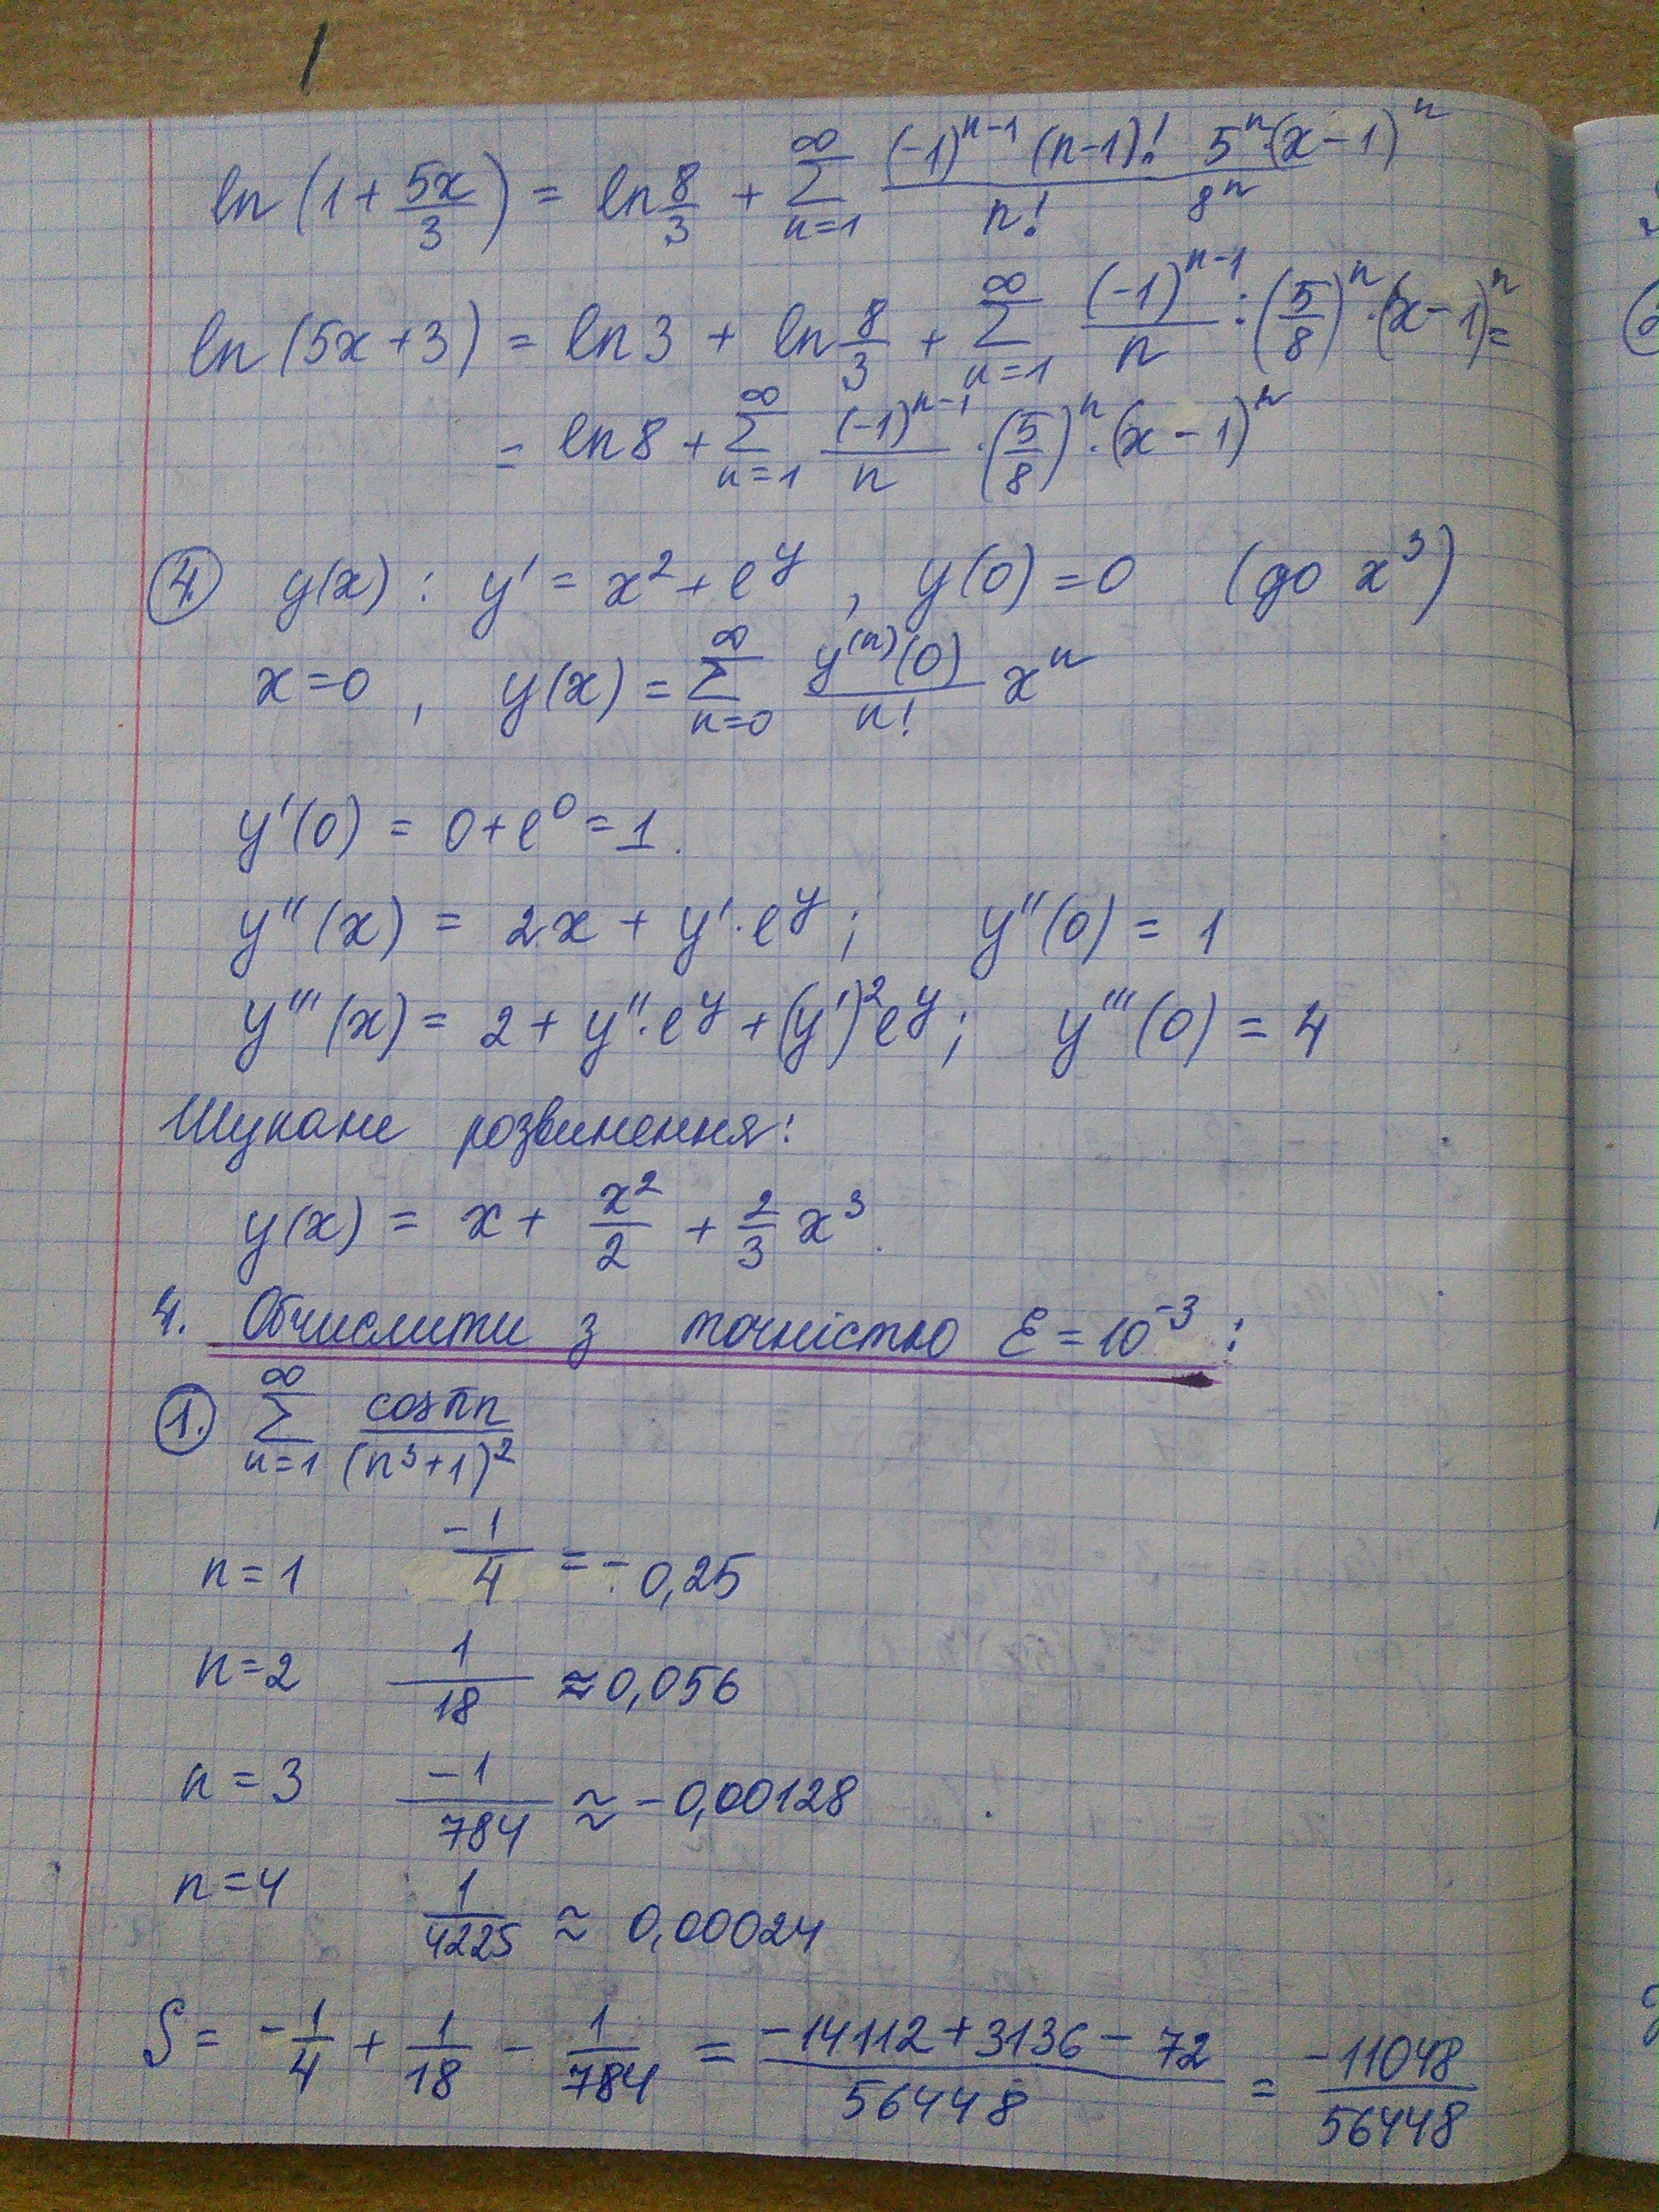 ln(1 + 5x/3) = ln 8/3 + ∑_{n=1}^{∞} (-1)^{n-1} (n-1)! 5^n·(x-1)^n / n! 8^n
ln(5x+3) = ln3 + ln 8/3 + ∑_{n=1}^{∞} (-1)^{n-1}/n · (5/8)^n · (x-1)^n =
= ln8 + ∑_{n=1}^{∞} (-1)^{n-1}/n · (5/8)^n · (x-1)^n
4. y(x): y' = x² + e^y, y(0)=0 (до x³)
x=0, y(x) = ∑_{n=0}^{∞} y^{(n)}(0)/n! x^n
y'(0) = 0+e⁰ = 1.
y''(x) = 2x + y'·e^y; y''(0) = 1
y'''(x) = 2 + y''·e^y + (y')²e^y; y'''(0) = 4
Шукане розвинення:
y(x) = x + x²/2 + 2/3 x³.
4. Обчислити з точністю ε = 10^{-3}:
1. ∑_{n=1}^{∞} cosπn/(n³+1)²
n=1 -1/4 = -0,25
n=2 1/18 ≈ 0,056
n=3 -1/784 ≈ -0,00128
n=4 1/4225 ≈ 0,00024
S = -1/4 + 1/18 - 1/784 = -14112+3136-72/56448 = -11048/56448